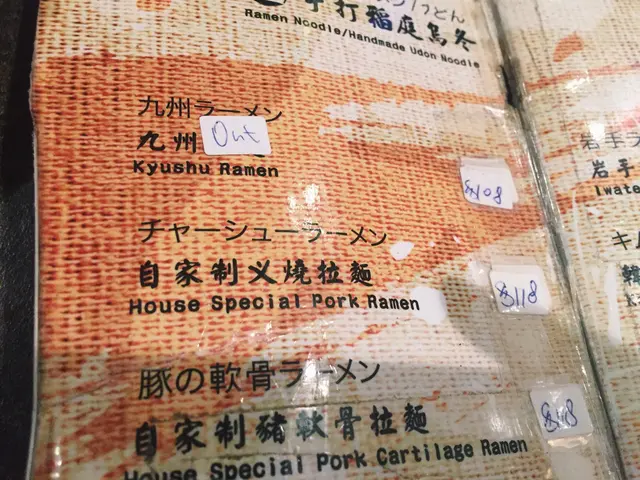 手打稲庭烏冬
Ramen Noodle/Handmade Udon Noodle
九州ラーメン
九州 Out
Kyushu Ramen
$108
チャーシューラーメン
自家制义燒拉麵
House Special Pork Ramen
$118
豚の軟骨ラーメン
自家制豬軟骨拉麵
$118
House Special Pork Cartilage Ramen
岩手
岩手
Iwate
キム
韓